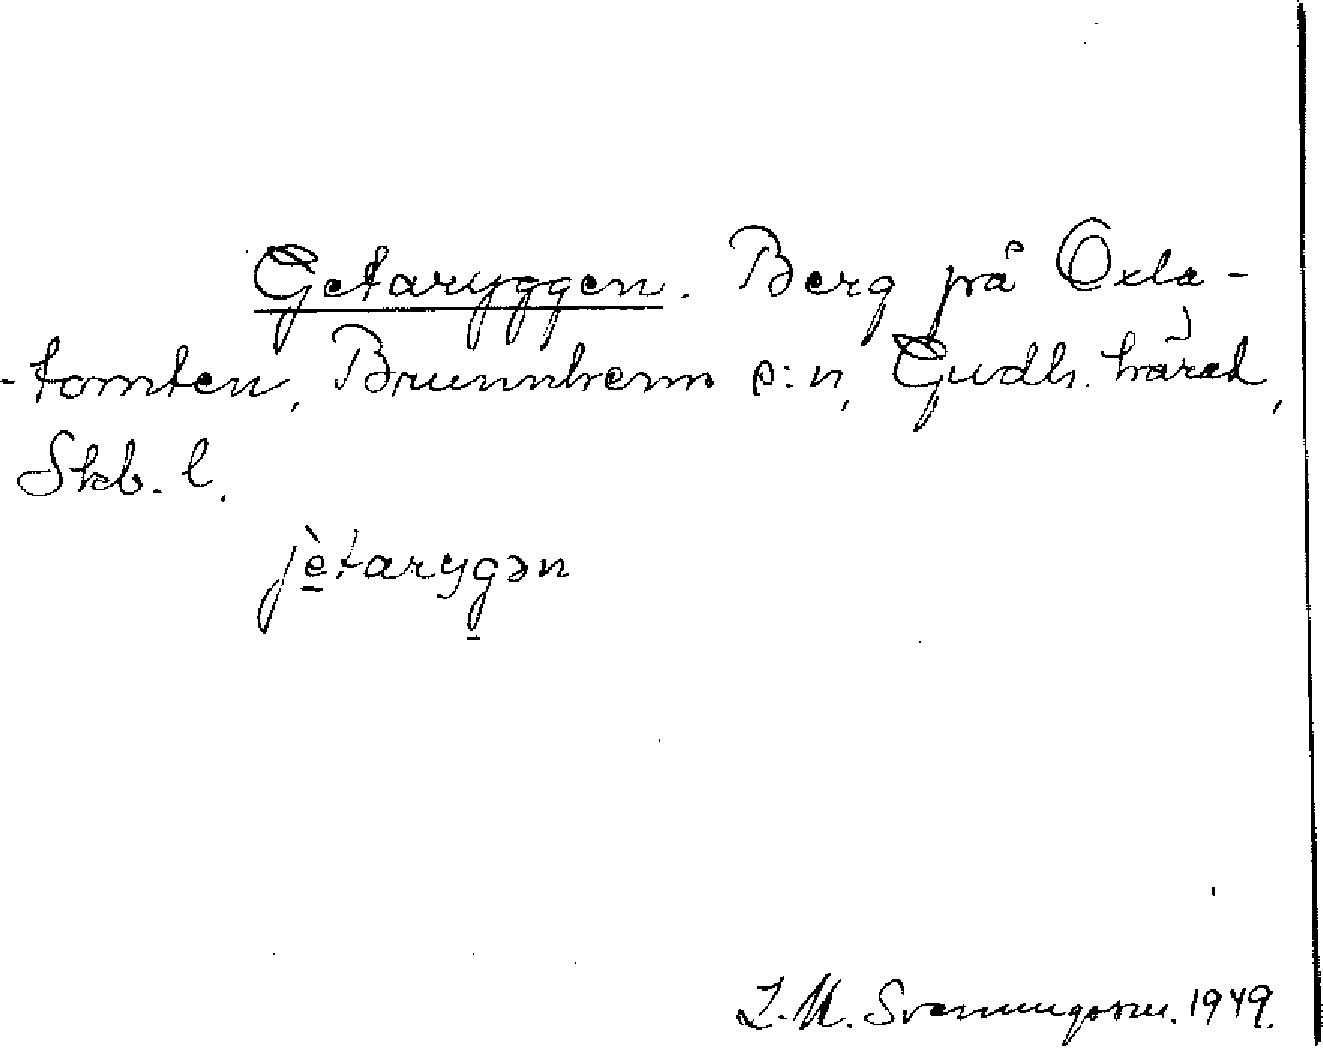 Getaryggen. Berg på Oxla-
-tomten, Brunnhem s:n, Gudh. härad,
Skb. l.
jètarygən
I. M. Svenungsson. 1949.